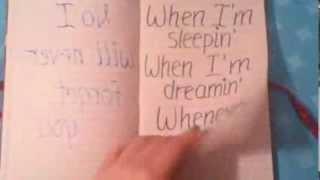 will never
forget
you
When I'm
sleepin'
When I'm
dreamin'